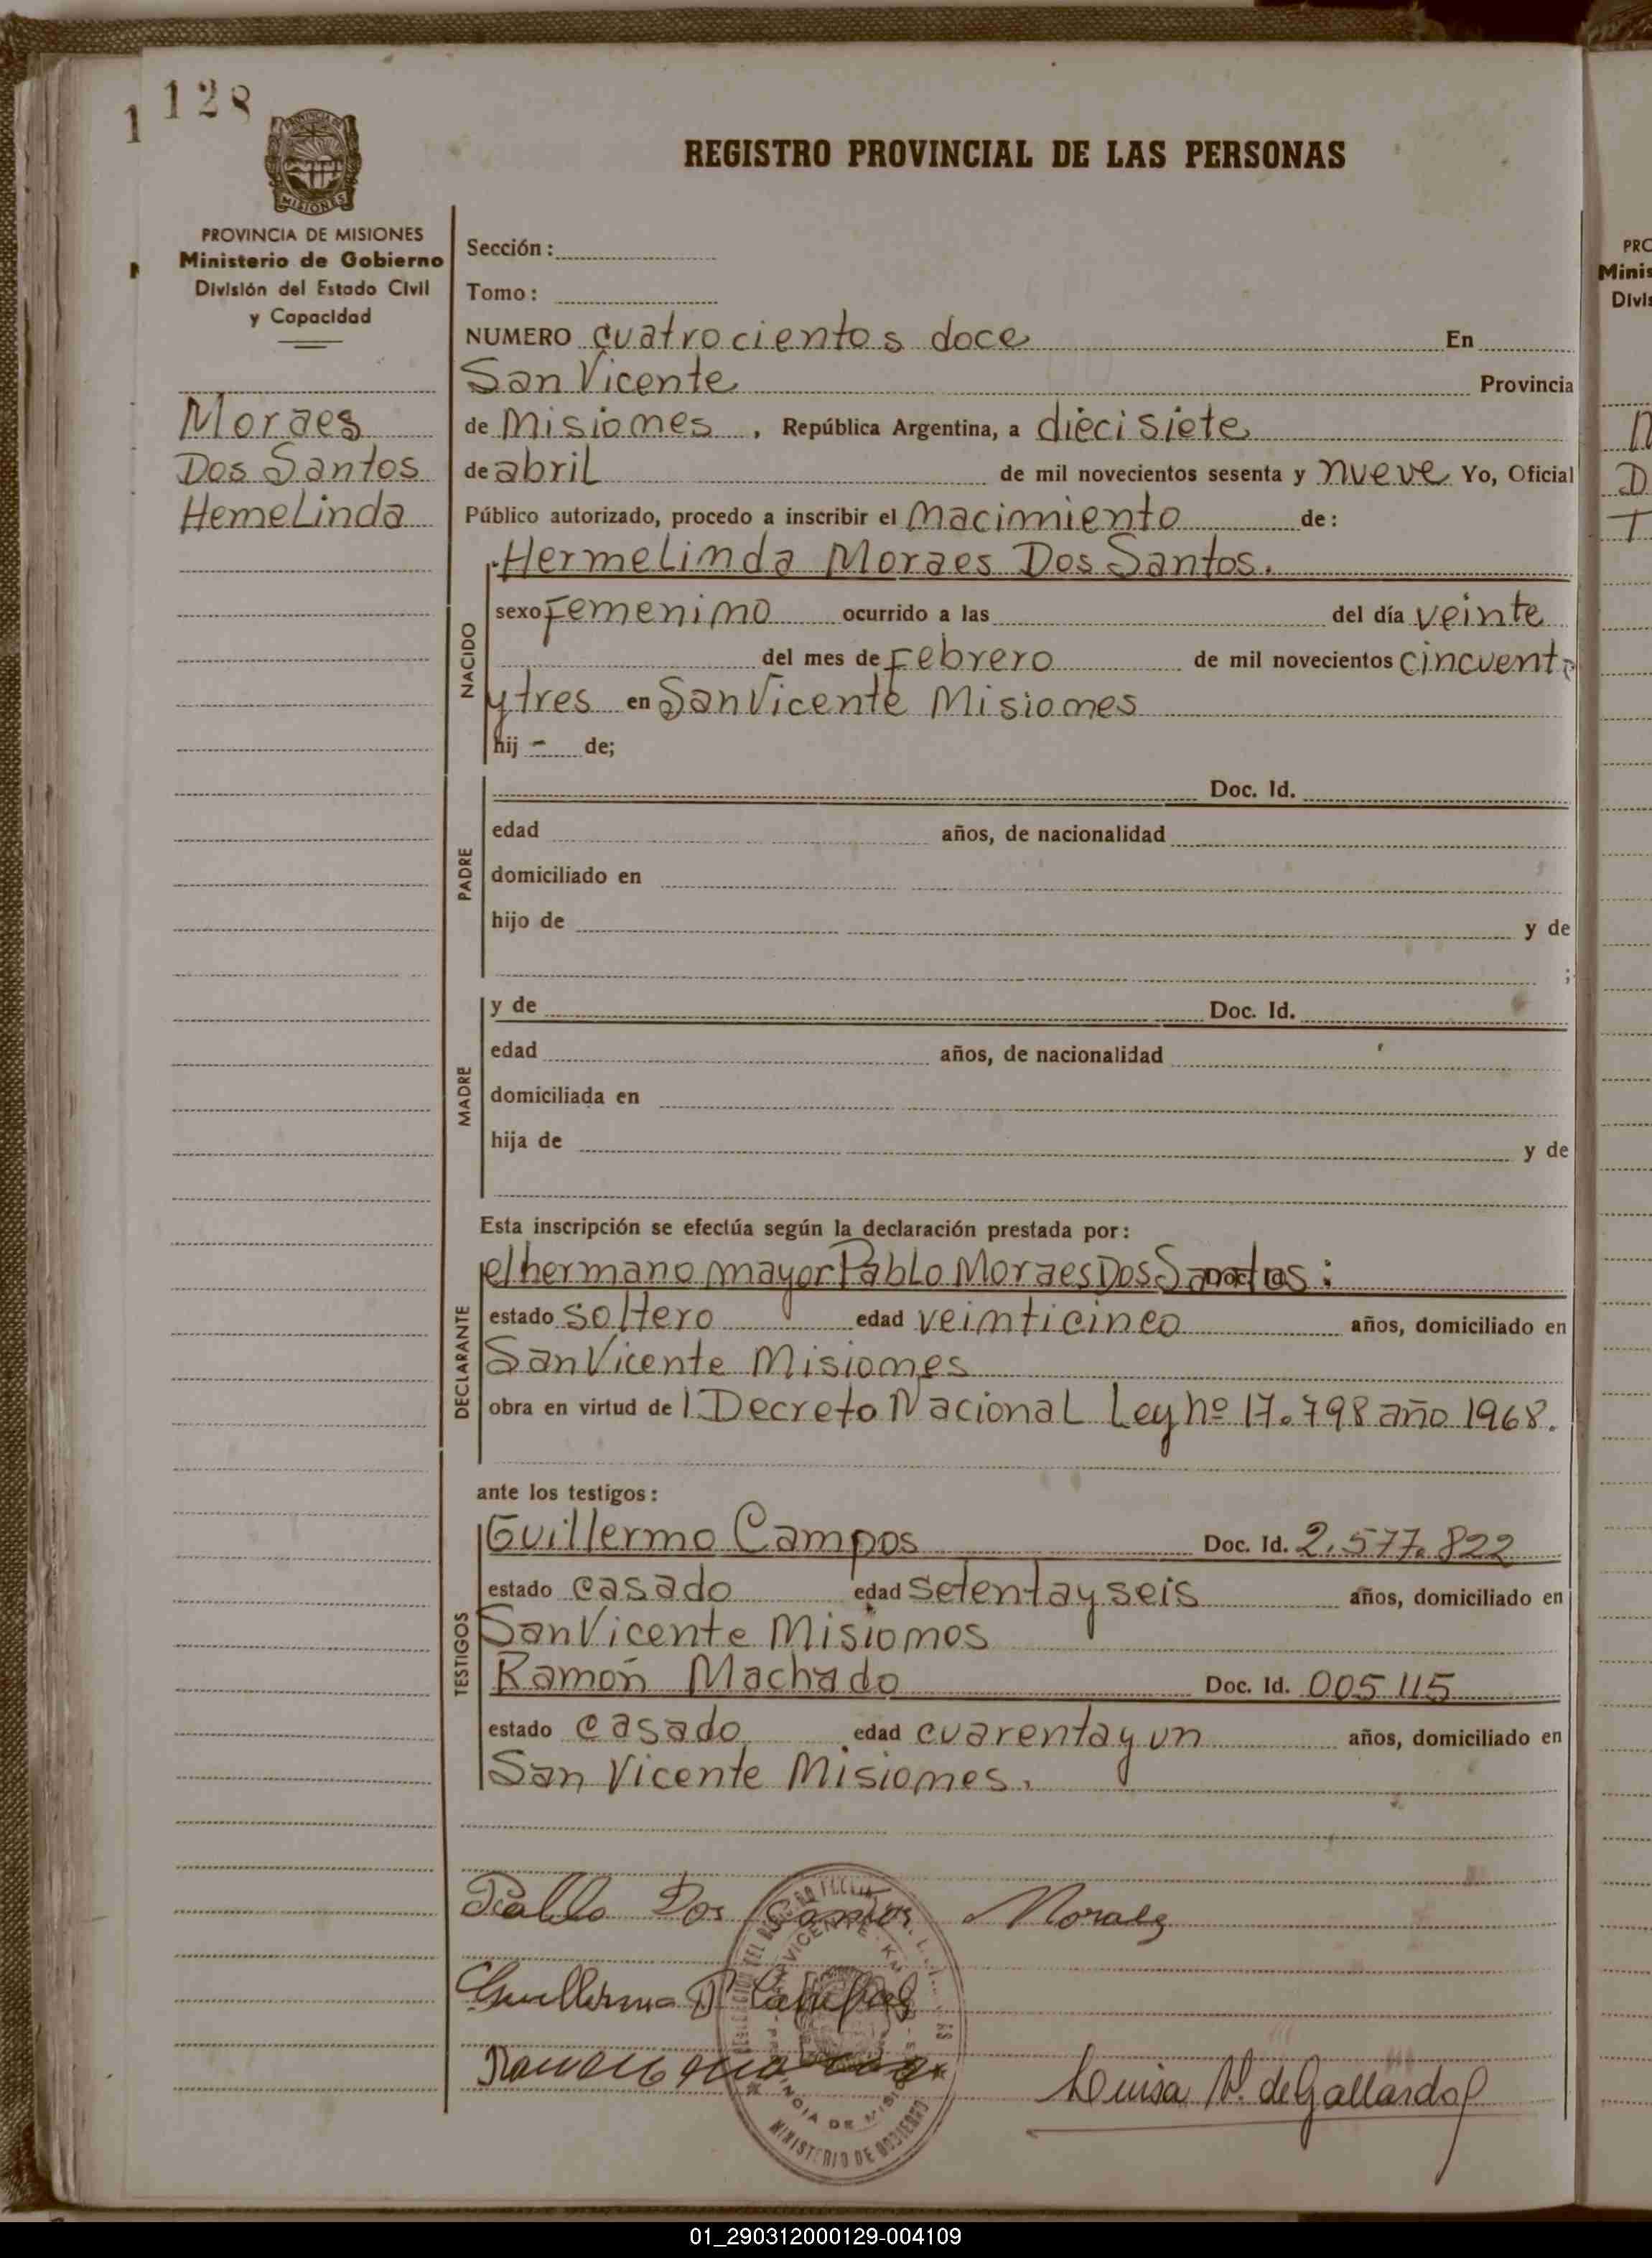 128
1
MISIONES
REGISTRO PROVINCIAL DE LAS PERSONAS
PROVINCIA DE MISIONES
Ministerio de Gobierno
División del Estado Civil
y Capacidad
Moraes
Dos Santos
Hemelinda
Sección:
Tomo:
NUMERO cuatrocientos doce En
San Vicente Provincia
de Misiones, República Argentina, a diecisiete
de abril de mil novecientos sesenta y nueve Yo, Oficial
Público autorizado, procedo a inscribir el nacimiento de:
Hermelinda Moraes Dos Santos.
NACIDO
sexo Femenino ocurrido a las del día veinte
del mes de Febrero de mil novecientos cincuenta
y tres en San Vicente Misiones
hij - de;
PADRE
Doc. Id.
edad años, de nacionalidad
domiciliado en
hijo de y de
;
MADRE
y de Doc. Id.
edad años, de nacionalidad
domiciliada en
hija de y de
Esta inscripción se efectúa según la declaración prestada por:
DECLARANTE
el hermano mayor Pablo Moraes Dos Santos:
estado soltero edad veinticinco años, domiciliado en
San Vicente Misiones
obra en virtud de l Decreto Nacional Ley nº 17.798 año 1968.
ante los testigos:
TESTIGOS
Guillermo Campos Doc. Id. 2.577.822
estado casado edad setenta y seis años, domiciliado en
San Vicente Misiones
Ramón Machado Doc. Id. 005115
estado casado edad cuarenta y un años, domiciliado en
San Vicente Misiones.
Pablo Dos Santos Moraes
Guillermo Campos
Luisa de Gallardo
MINISTERIO DE GOBIERNO
PRO
Minis
Divis
01_290312000129-004109